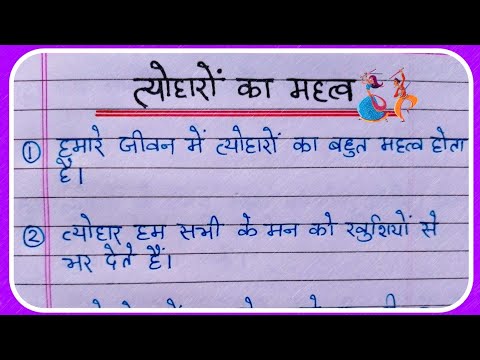 त्योहारों का महत्व
① हमारे जीवन में त्योहारों का बहुत महत्व होता
है।
② त्योहार हम सभी के मन को खुशियों से
भर देते हैं।